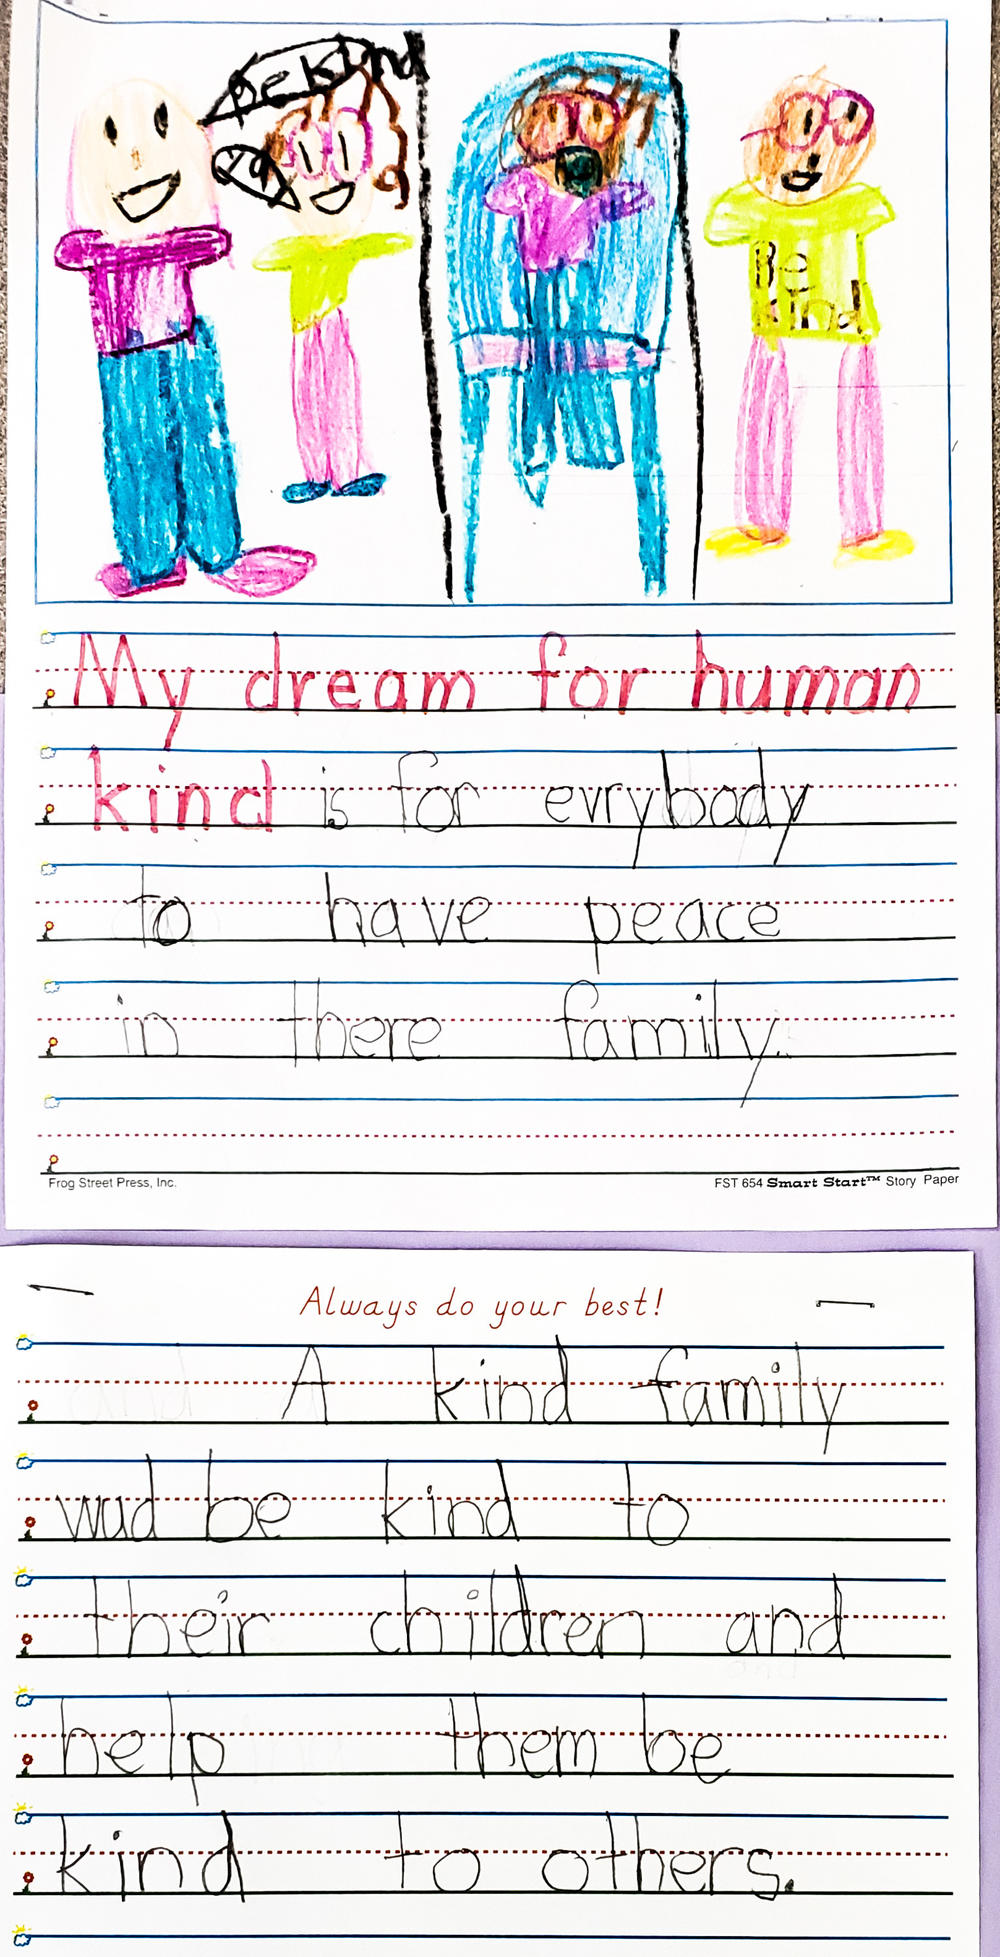 Be kind
Be
kind
My dream for human
kind is for evrybody
to have peace
in there family.
Frog Street Press, Inc.
FST 654 Smart Start™ Story Paper
Always do your best!
A kind family
wud be kind to
their children and
help them be
kind to others.